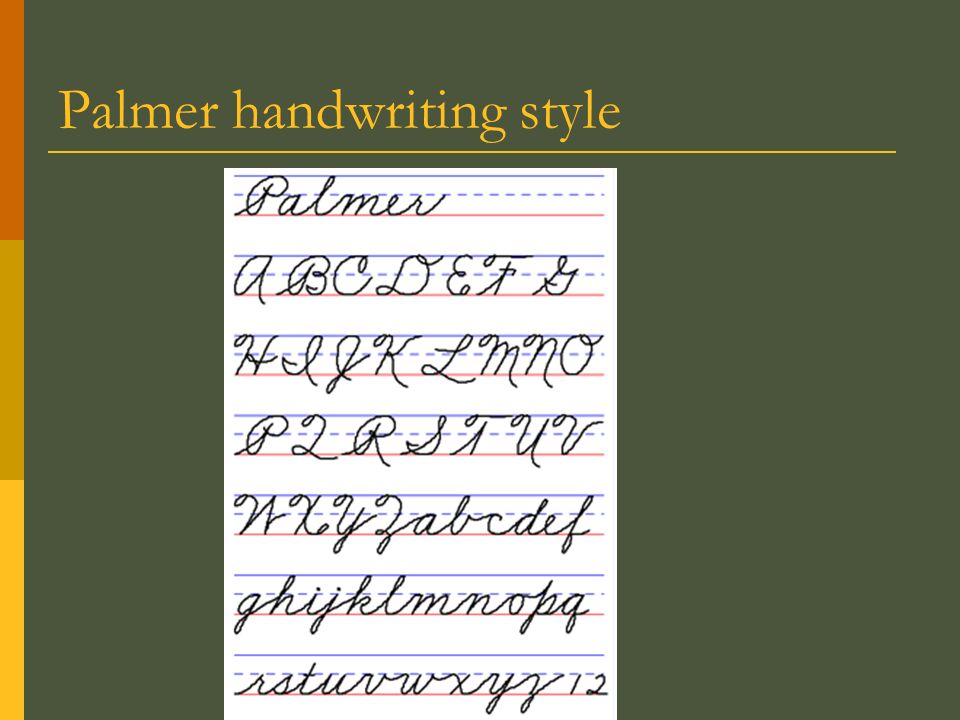 Palmer handwriting style
Palmer
A B C D E F G
H I J K L M N O
P Q R S T U V
W X Y Z a b c d e f
g h i j k l m n o p q
r s t u v w x y z 1 2